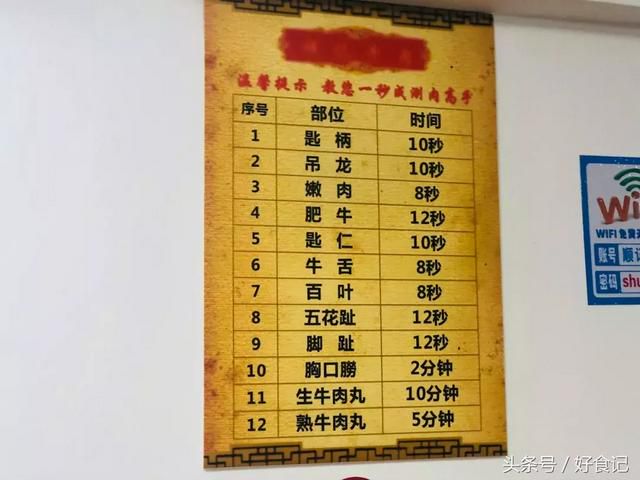 温馨提示 教您一秒成涮肉高手
序号 部位 时间
1 匙柄 10秒
2 吊龙 10秒
3 嫩肉 8秒
4 肥牛 12秒
5 匙仁 10秒
6 牛舌 8秒
7 百叶 8秒
8 五花趾 12秒
9 脚趾 12秒
10 胸口朥 2分钟
11 生牛肉丸 10分钟
12 熟牛肉丸 5分钟
Wi
WIFI免费
账号 顺
密码 shu
头条号 / 好食记